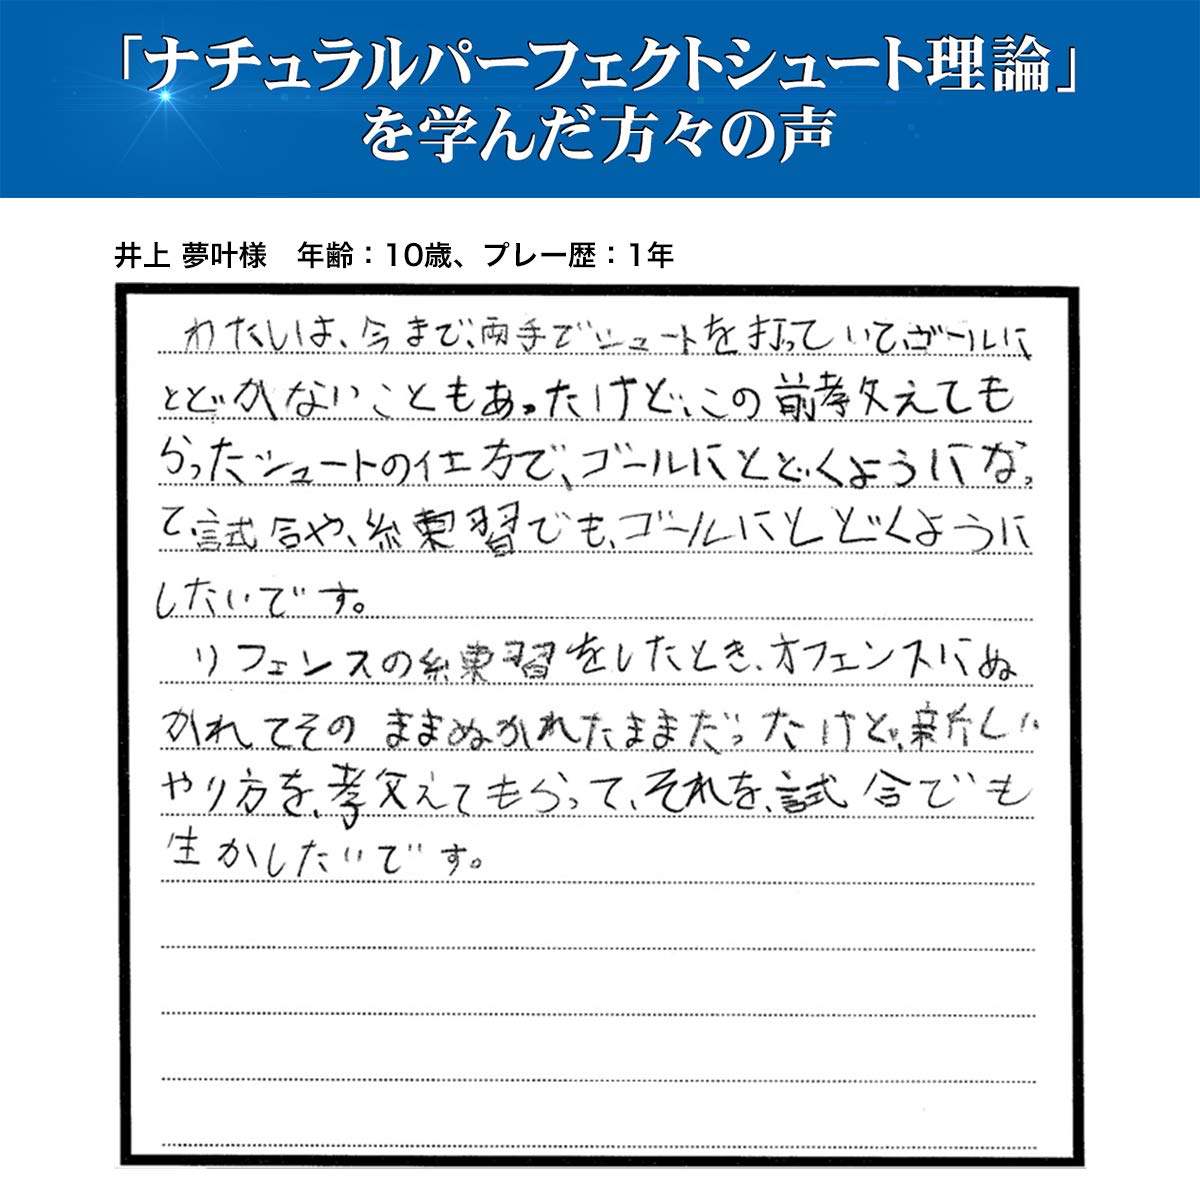 「ナチュラルパーフェクトシュート理論」
を学んだ方々の声
井上 夢叶様　年齢：10歳、プレー歴：1年
わたしは、今まで、両手でシュートを打っていて、ゴールに
とどかないこともあったけど、この前教えても
らったシュートの仕方で、ゴールにとどくようになっ
て試合や、練習でも、ゴールにとどくように
したいです。
リフェンスの練習をしたとき、オフェンスにぬ
かれてそのままぬかれたままだったけど、新しい
やり方を、教えてもらって、それを、試合でも
生かしたいです。